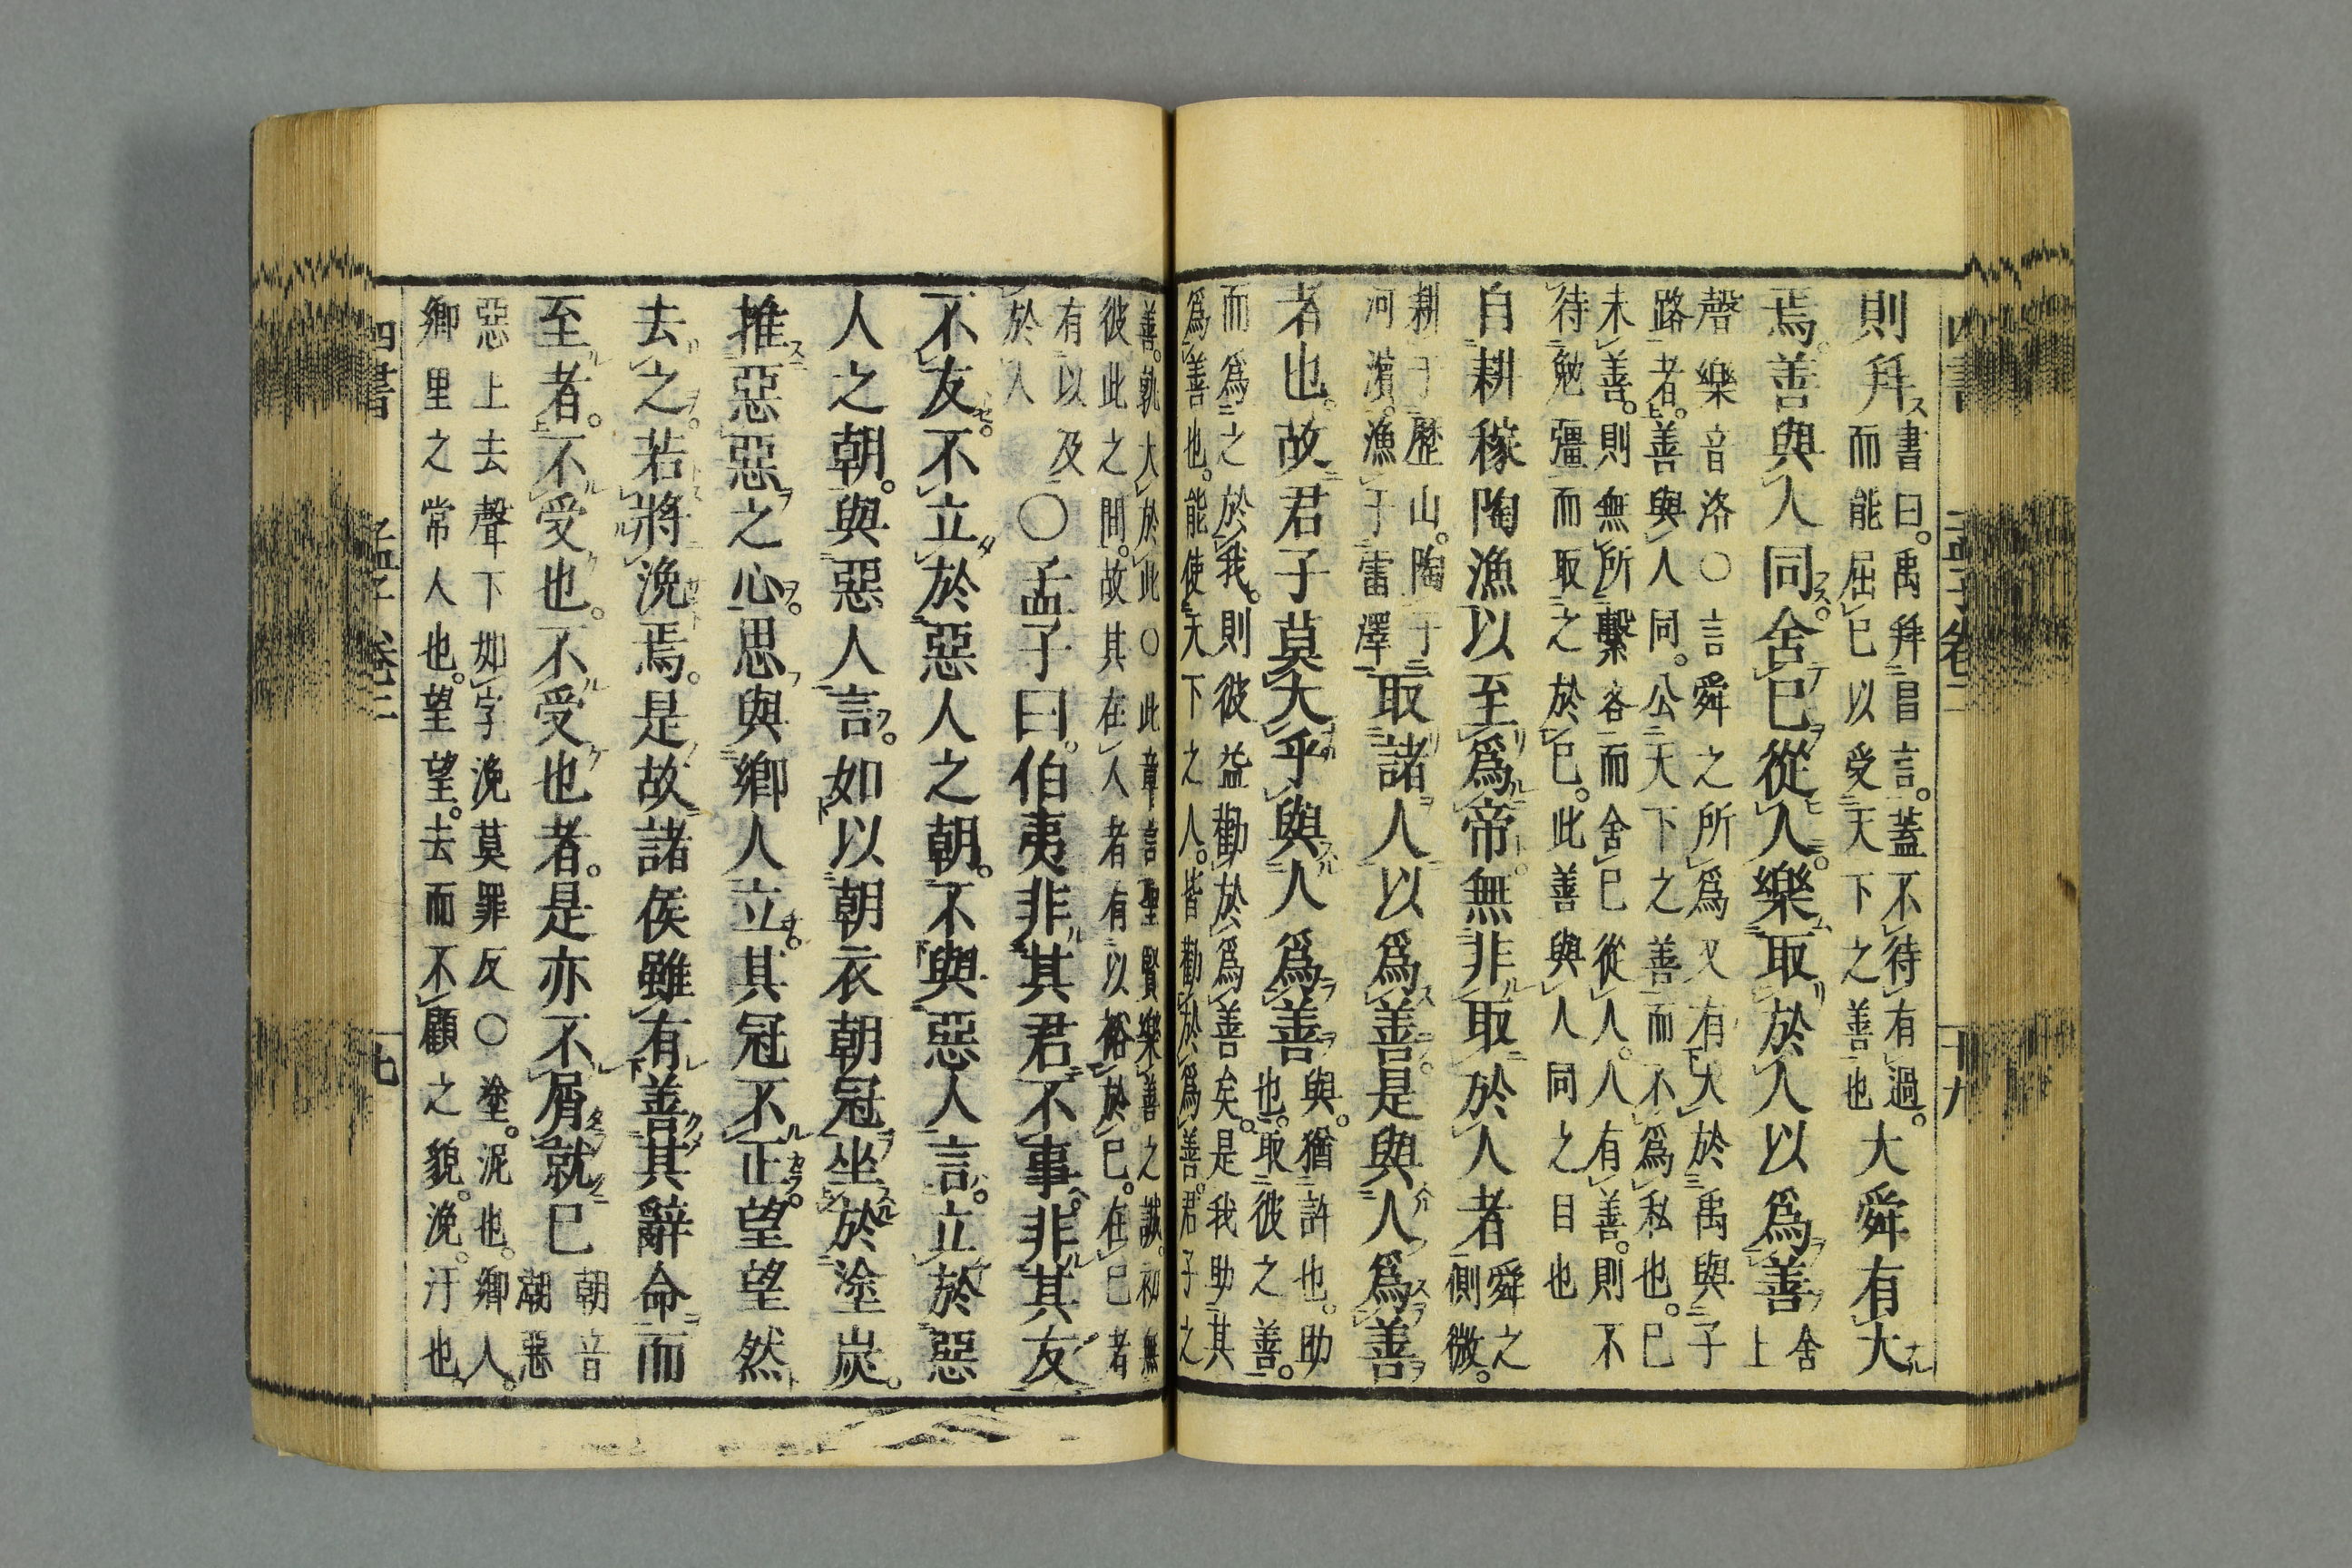 則拜書曰。禹拜昌言。蓋不待有過。
而能屈已以受天下之善也
大舜有大
焉。善與人同。舍已從人。樂取於人以爲善舍
上
聲樂音洛○言舜之所爲又有大於禹與子
路者。善與人同。公天下之善而不爲私也。已
未善。則無所繫吝而舍已從人。人有善。則不
待勉彊而取之於已。此善與人同之目也
自耕稼陶漁以至爲帝。無非取於人者舜之
側微。
耕于歷山。陶于
河濱。漁于雷澤
取諸人以爲善。是與人爲善
者也。故君子莫大乎與人爲善與。猶許也。助
也。取彼之善。
而爲之於我。則彼益勸於爲善矣。是我助其
爲善也。能使天下之人。皆勸於爲善。君子之
善。孰大於此○此章言聖賢樂善之誠。初無
彼此之間。故其在人者有以裕於已。在已者
有以及
於人
○孟子曰。伯夷非其君不事。非其友
不友。不立於惡人之朝。不與惡人言。立於惡
人之朝。與惡人言。如以朝衣朝冠坐於塗炭。
推惡惡之心。思與鄉人立。其冠不正。望望然
去之。若將浼焉。是故諸侯雖有善其辭命而
至者。不受也。不受也者。是亦不屑就已朝音
潮惡
惡上去聲下如字浼莫罪反○塗。泥也。鄉人。
鄉里之常人也。望望。去而不顧之貌。浼。汙也。
四書 孟子卷二